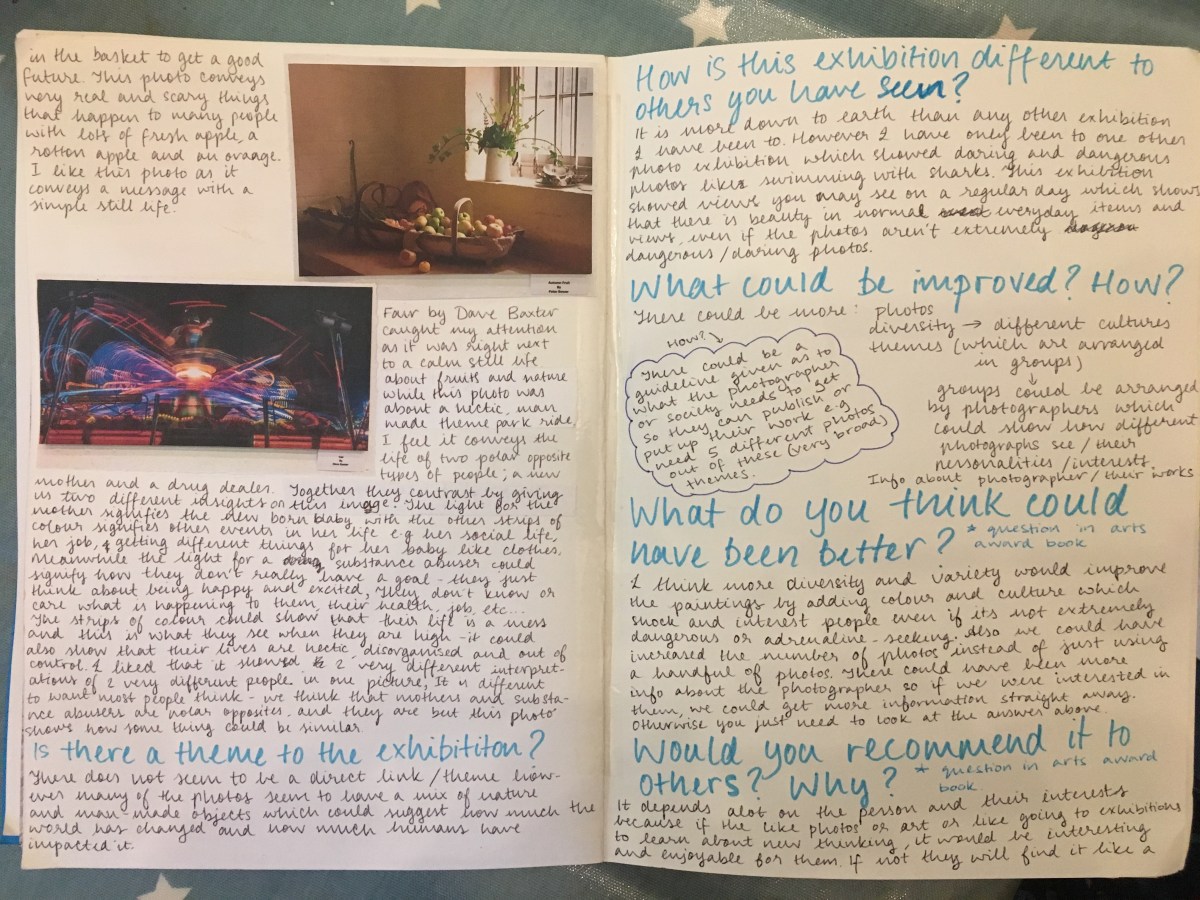 in the basket to get a good
future. This photo conveys
very real and scary things
that happen to many people
with lots of fresh apple, a
rotton apple and an orange.
I like this photo as it
conveys a message with a
simple still life.
Autumn Fruit
By
Fair by Dave Baxter
caught my attention
as it was right next
to a calm still life
about fruits and nature
while this photo was
about a hectic, man
made theme park ride.
I feel it conveys the
life of two polar opposite
types of people; a new
mother and a drug dealer. Together they contrast by giving
us two different insights on this image. The light for the
mother signifies the new born baby with the other strips of
colour signifies other events in her life e.g her social life,
her job, & getting different things for her baby like clothes.
Meanwhile the light for a substance abuser could
signify how they don't really have a goal - they just
think about being happy and excited, They don't know or
care what is happening to them, their health, job, etc...
The strips of colour could show that their life is a mess
and this is what they see when they are high - it could
also show that their lives are hectic, disorganised and out of
control. I liked that it showed 2 very different interpret-
ations of 2 very different people in one picture. It is different
to want most people think - we think that mothers and substa-
nce abusers are polar opposites, and they are but this photo
shows how some thing could be similar.
Is there a theme to the exhibititon?
There does not seem to be a direct link / theme how-
ever many of the photos seem to have a mix of nature
and man-made objects which could suggest how much the
world has changed and how much humans have
impacted it.
How is this exhibition different to
others you have seen?
It is more down to earth than any other exhibition
I have been to. However I have only been to one other
photo exhibition which showed daring and dangerous
photos like swimming with sharks. This exhibition
showed views you may see on a regular day which shows
that there is beauty in normal everyday items and
views, even if the photos aren't extremely
dangerous / daring photos.
What could be improved? How?
There could be more: photos
diversity → different cultures
themes (which are arranged
in groups)
↓
groups could be arranged
by photographers which
could show how different
photographs see / their
personalities / interests.
Info about photographer / their works
HOW?
There could be a
guideline given as to
what the photographer
or society needs to get
so they can publish or
put up their work e.g
need 5 different photos
out of these (very broad)
themes.
What do you think could
have been better? * question in arts
award book
I think more diversity and variety would improve
the paintings by adding colour and culture which
shock and interest people even if its not extremely
dangerous or adrenaline-seeking. Also we could have
increased the number of photos instead of just using
a handful of photos. There could have been more
info about the photographer so if we were interested in
them, we could get more information straight away.
Otherwise you just need to look at the answer above.
Would you recommend it to
others? Why? * question in arts award
book
It depends alot on the person and their interests
because if the like photos or art or like going to exhibitions
to learn about new thinking, it would be interesting
and enjoyable for them. If not they will find it like a